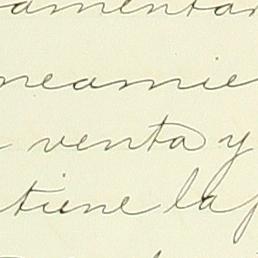 amentar
neamie
venta y
tiene la f